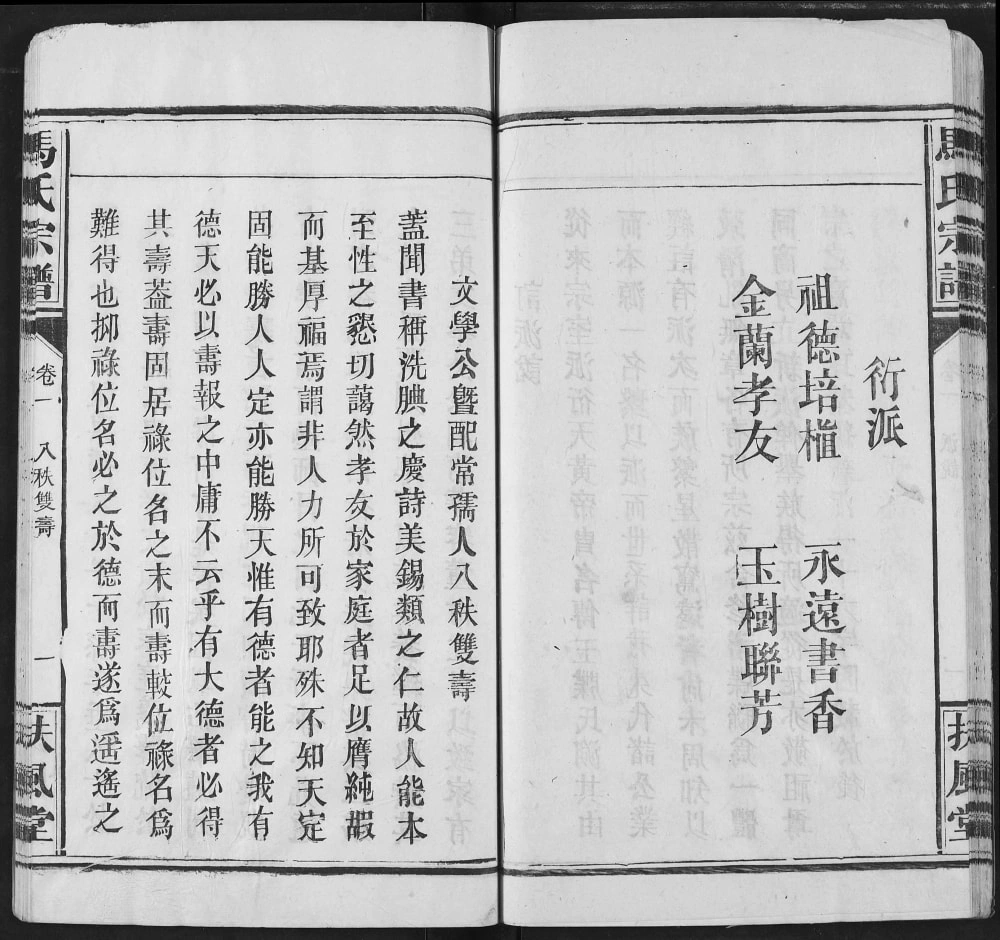 馬氏宗譜
扶風堂
衍派
祖德培植 永遠書香
金蘭孝友 玉樹聯芳
文學公暨配常孺人八秩雙壽
蓋聞書稱洗腆之慶詩美錫類之仁故人能本
至性之懇切藹然孝友於家庭者足以膺純嘏
而基厚福焉謂非人力所可致耶殊不知天定
固能勝人人定亦能勝天惟有德者能之我有
德天必以壽報之中庸不云乎有大德者必得
其壽葢壽固居祿位名之末而壽較位祿名爲
難得也抑祿位名必之於德而壽遂爲遥遙之
馬氏宗譜
卷一 八秩雙壽
一
扶風堂